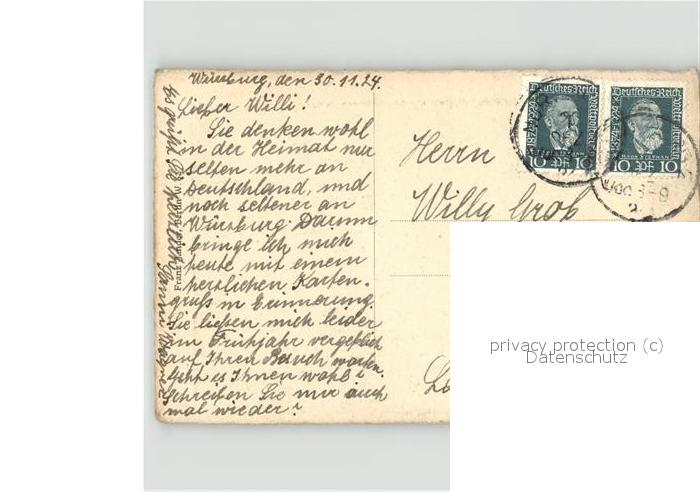 Würzburg, den 30.11.24.
Lieber Willi!
Sie denken wohl
in der Heimat nur
selten mehr an
Deutschland, und
noch seltener an
Würzburg. Darum
bringe ich mich
heute mit einem
herzlichen Karten-
gruß in Erinnerung.
Sie ließen mich leider
im Frühjahr vergeblich
auf Ihren Besuch warten.
Geht es Ihnen wohl?
Schreiben Sie mir auch
mal wieder?
Es grüßt Sie herzlich
Herrn
Willy Groß
Deutsches Reich
Weltpostverein
1874-1924
10 Pf 10
Deutsches Reich
Weltpostverein
1874-1924
10 Pf 10
privacy protection (c)
Datenschutz